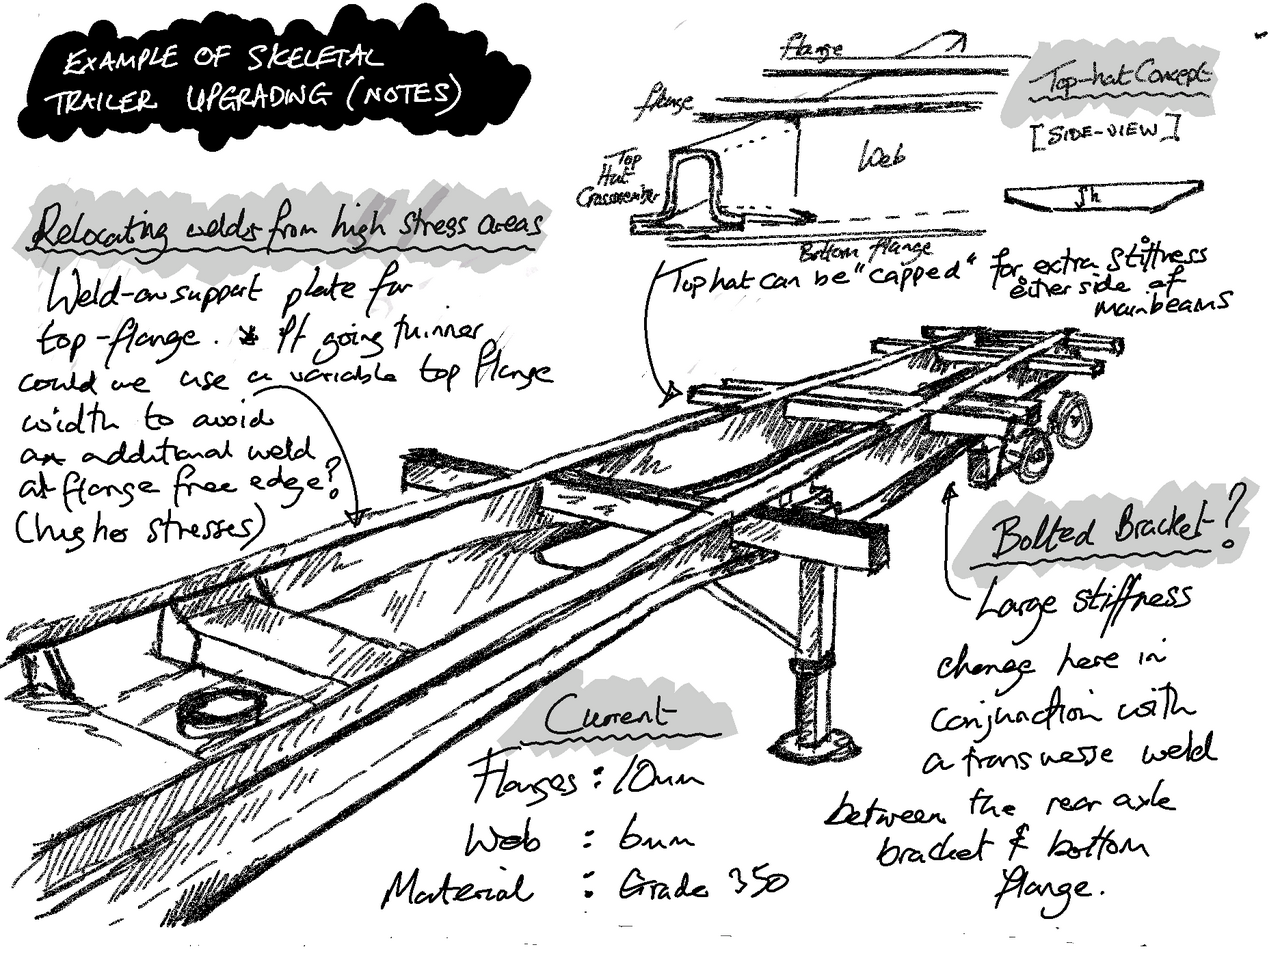 EXAMPLE OF SKELETAL
TRAILER UPGRADING (NOTES)
Relocating welds from high stress areas
Weld-on support plate for
top-flange. * If going thinner
could we use a variable top flange
width to avoid
an additional weld
at flange free edge?
(higher stresses)
flange
flange
Top
Hat
Crossmember
Web
Bottom flange
Top-hat Concept
[SIDE-VIEW]
h
Top hat can be "capped" for extra stiffness
either side of
mainbeams
Bolted Bracket?
Large stiffness
change here in
conjunction with
a transverse weld
between the rear axle
bracket & bottom
flange.
Current
Flanges : 10mm
Web : 6mm
Material : Grade 350